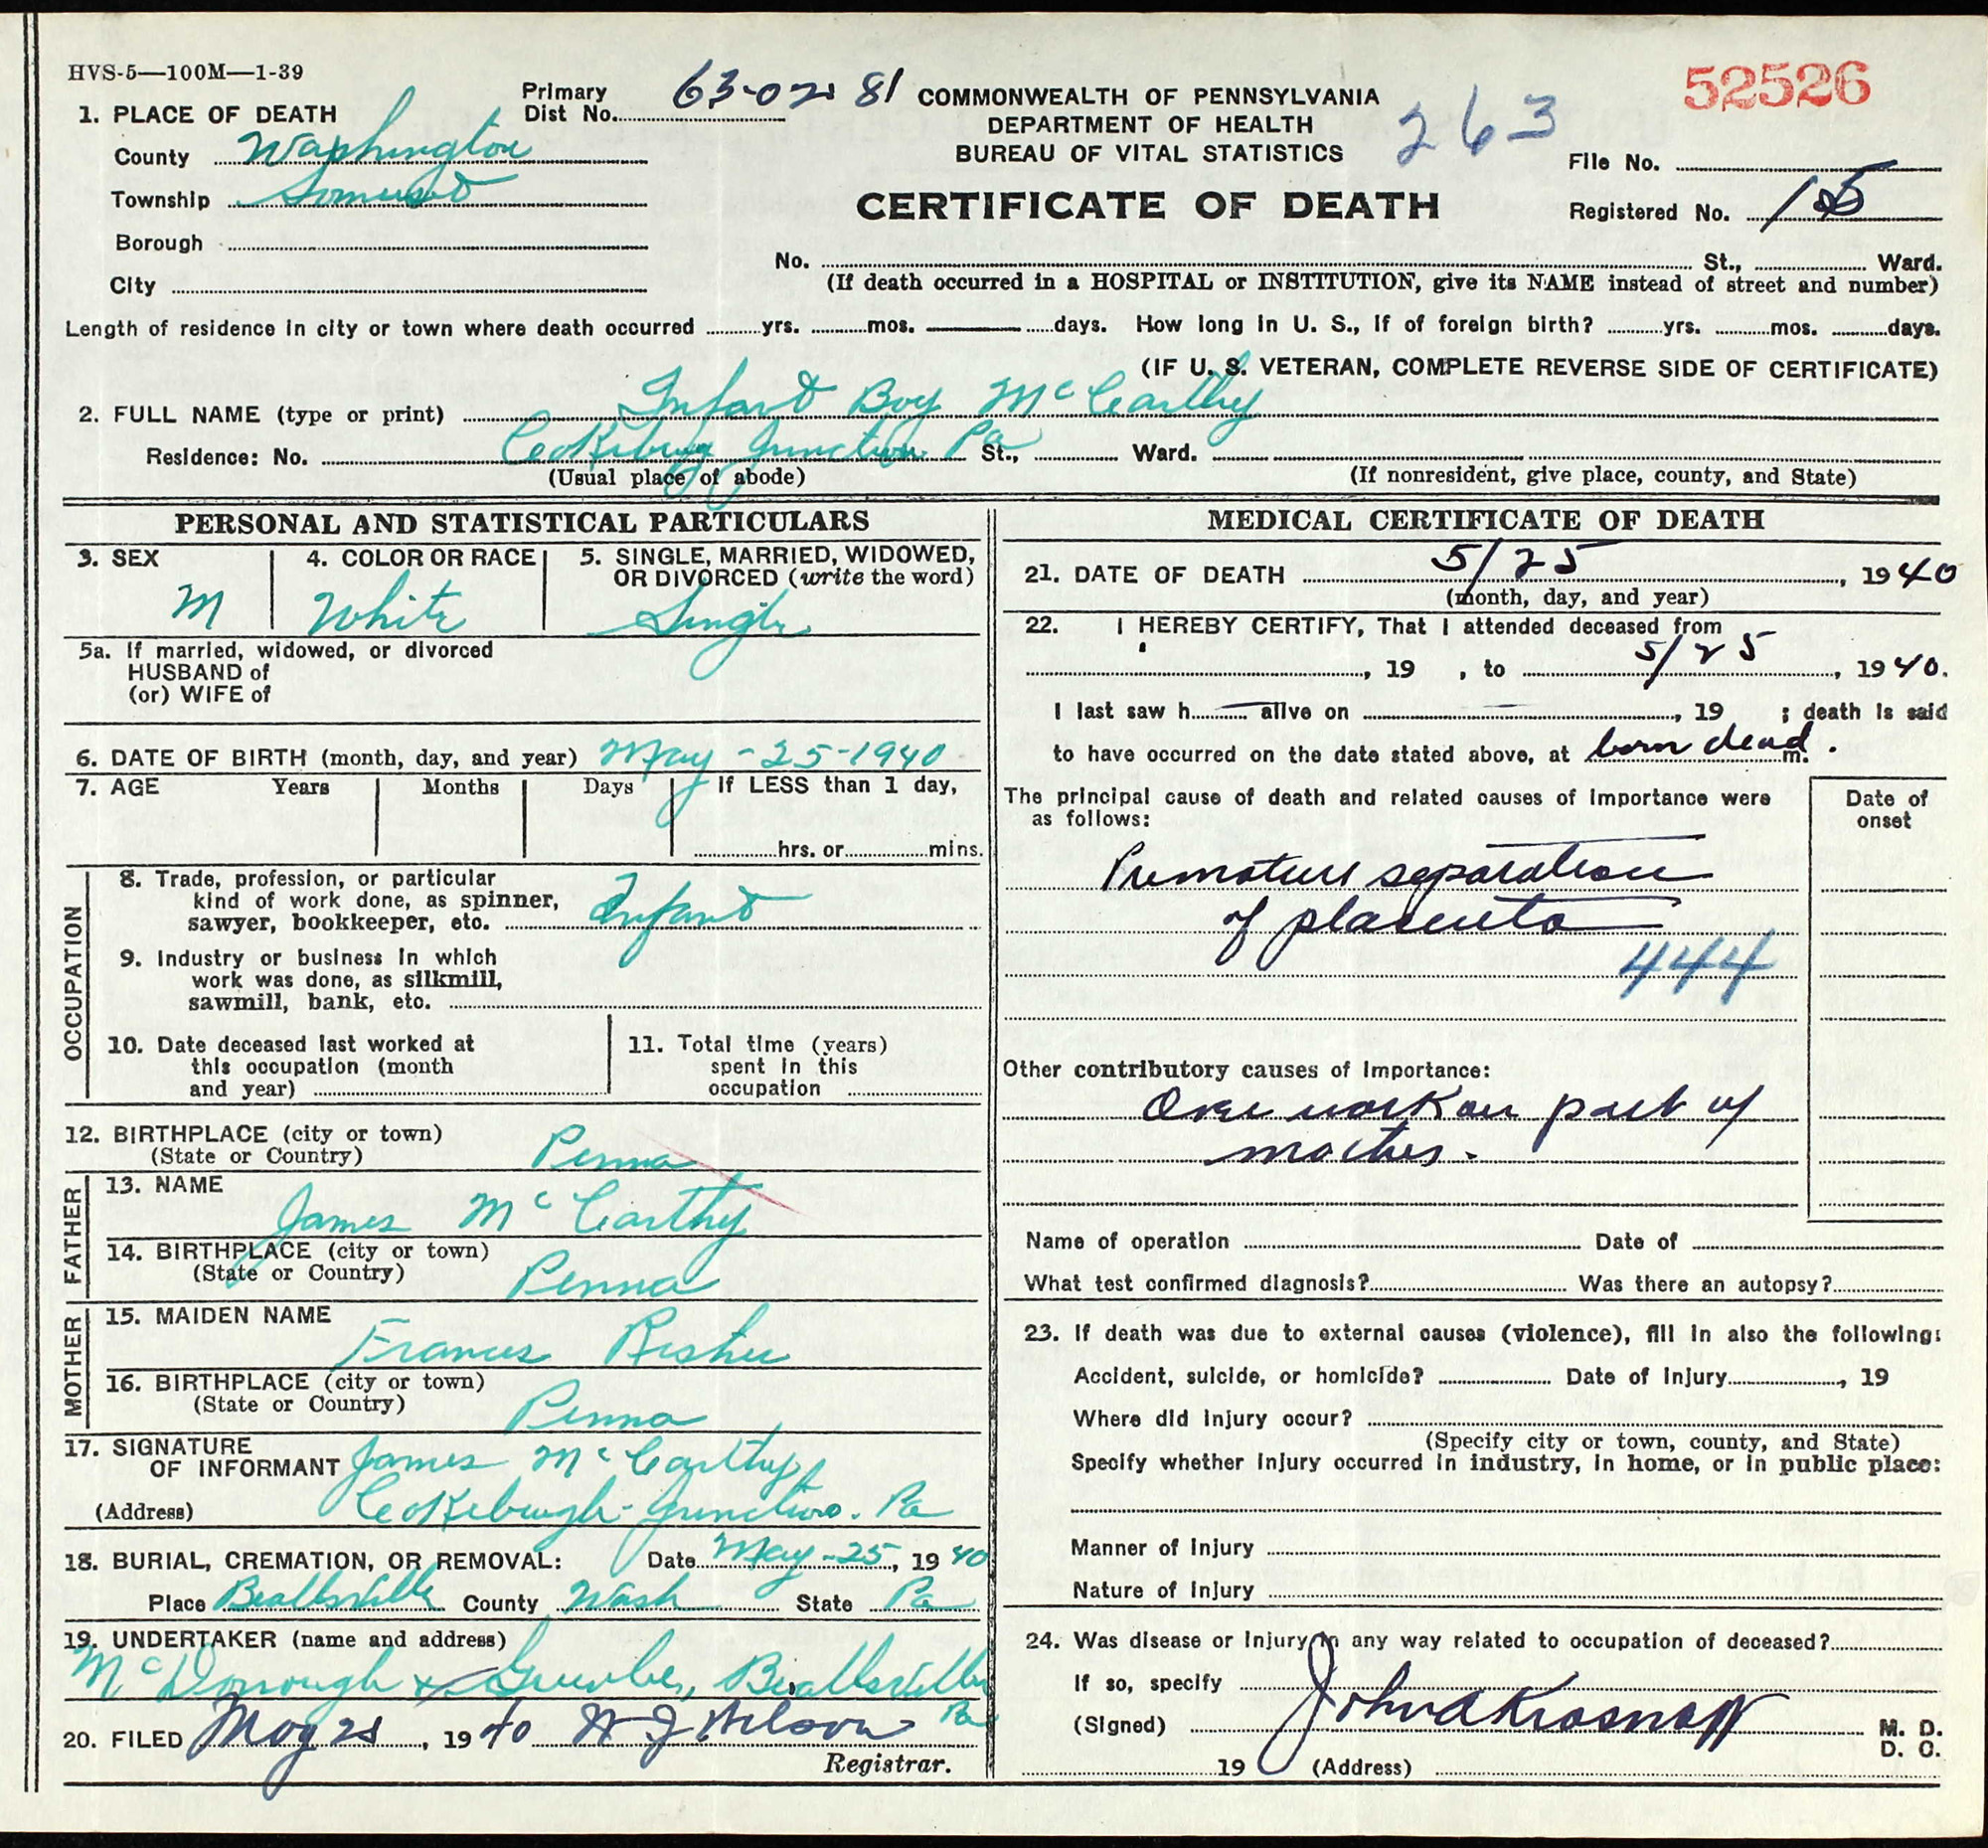 HVS-5—100M—1-39
52526
Primary
Dist No. 63-02 81
COMMONWEALTH OF PENNSYLVANIA
DEPARTMENT OF HEALTH
BUREAU OF VITAL STATISTICS
263
File No.
CERTIFICATE OF DEATH
Registered No. 15
1. PLACE OF DEATH
County Washington
Township Somerset
Borough
City
No. St., Ward.
(If death occurred in a HOSPITAL or INSTITUTION, give its NAME instead of street and number)
Length of residence in city or town where death occurred yrs. mos. days. How long in U. S., if of foreign birth? yrs. mos. days.
(IF U. S. VETERAN, COMPLETE REVERSE SIDE OF CERTIFICATE)
2. FULL NAME (type or print) Infant Boy McCarthy
Residence: No. Cokeburg Junction Pa St., Ward.
(Usual place of abode) (If nonresident, give place, county, and State)
PERSONAL AND STATISTICAL PARTICULARS
3. SEX 4. COLOR OR RACE 5. SINGLE, MARRIED, WIDOWED,
OR DIVORCED (write the word)
M White Single
5a. If married, widowed, or divorced
HUSBAND of
(or) WIFE of
6. DATE OF BIRTH (month, day, and year) May-25-1940
7. AGE Years Months Days If LESS than 1 day,
hrs. or mins.
OCCUPATION
8. Trade, profession, or particular
kind of work done, as spinner,
sawyer, bookkeeper, etc. Infant
9. Industry or business in which
work was done, as silkmill,
sawmill, bank, etc.
10. Date deceased last worked at
this occupation (month
and year)
11. Total time (years)
spent in this
occupation
12. BIRTHPLACE (city or town)
(State or Country) Penna
FATHER
13. NAME
James McCarthy
14. BIRTHPLACE (city or town)
(State or Country) Penna
MOTHER
15. MAIDEN NAME
Frances Risher
16. BIRTHPLACE (city or town)
(State or Country) Penna
17. SIGNATURE
OF INFORMANT James McCarthy
(Address) Cokeburgh-Junction. Pa
18. BURIAL, CREMATION, OR REMOVAL: Date May-25, 1940
Place Beallsville County Wash State Pa
19. UNDERTAKER (name and address)
McDonough & Beallsville
Pa
20. FILED May 28, 1940
Registrar.
MEDICAL CERTIFICATE OF DEATH
21. DATE OF DEATH 5/25, 1940
(month, day, and year)
22. I HEREBY CERTIFY, That I attended deceased from
, 19 , to 5/25, 1940.
I last saw h alive on , 19 ; death is said
to have occurred on the date stated above, at born dead. m.
The principal cause of death and related causes of importance were
as follows:
Date of
onset
Premature separation
of placenta
444
Other contributory causes of importance:
Over work on part of
mother.
Name of operation Date of
What test confirmed diagnosis? Was there an autopsy?
23. If death was due to external causes (violence), fill in also the following:
Accident, suicide, or homicide? Date of injury , 19
Where did injury occur?
(Specify city or town, county, and State)
Specify whether injury occurred in industry, in home, or in public place:
Manner of injury
Nature of injury
24. Was disease or injury in any way related to occupation of deceased?
If so, specify
(Signed) John A Krosnoff M. D.
D. O.
19 (Address)